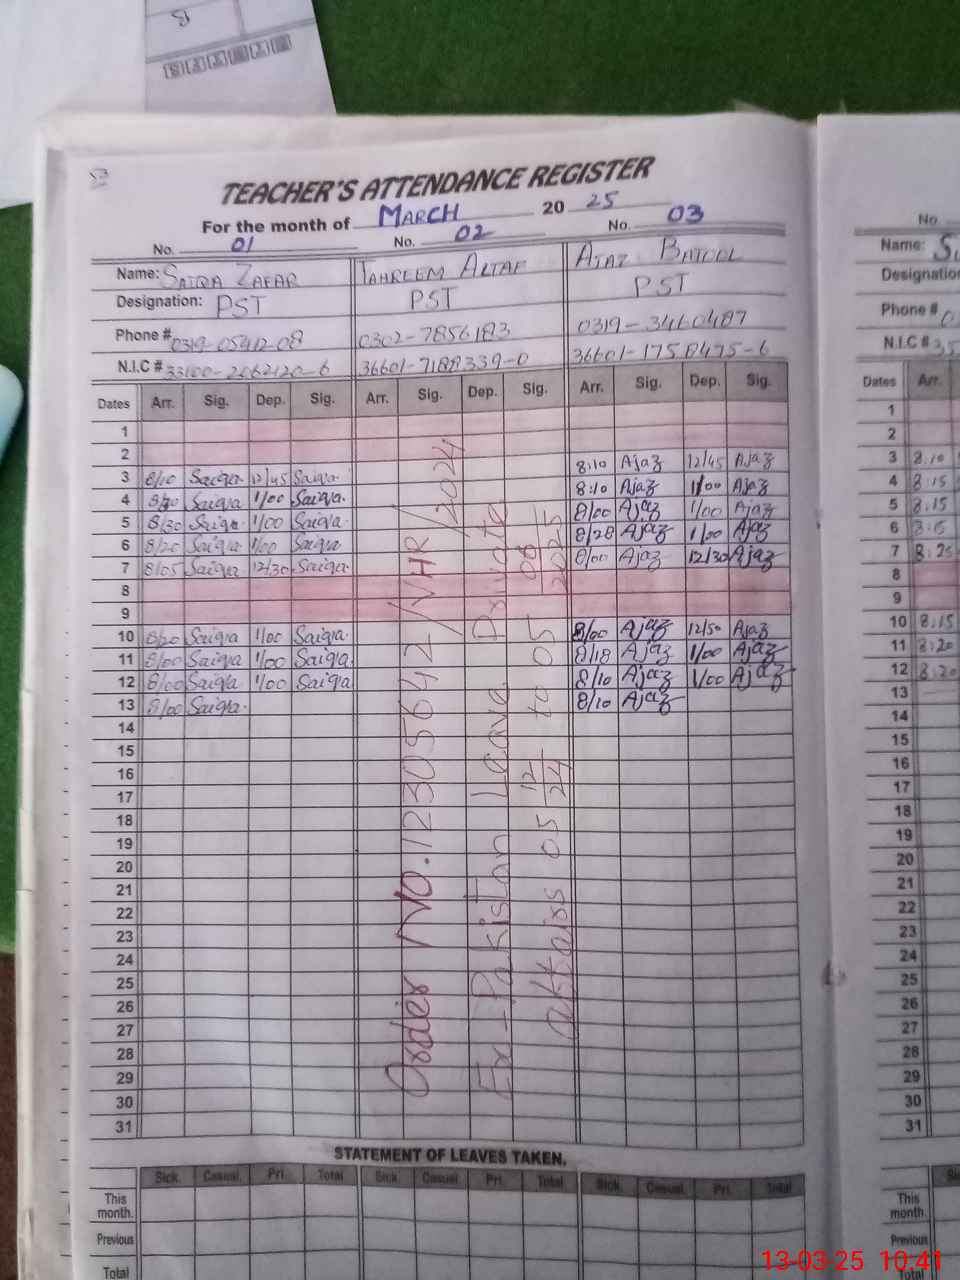 TEACHER'S ATTENDANCE REGISTER
For the month of MARCH 20 25
No. 01 No. 02 No. 03
Name: SAIQA ZAFAR TAHREEM ALTAF AJAZ BATOOL
Designation: PST PST PST
Phone # 0302-7856183 0319-3460487
N.I.C # 36601-7188339-0 36601-1758475-6
Dates Arr. Sig. Dep. Sig. Arr. Sig. Dep. Sig. Arr. Sig. Dep. Sig.
1
2
3 8/10 Saiqa 12/45 Saiqa 8:10 Ajaz 12/45 Ajaz
4 Saiqa 1/00 Saiqa 8:10 Ajaz 1/00 Ajaz
5 8/30 Saiqa 1/00 Saiqa 8/00 Ajaz 1/00 Ajaz
6 8/20 Saiqa 1/00 Saiqa 8/28 Ajaz 1/00 Ajaz
7 8/05 Saiqa 12/30 Saiqa 8/00 Ajaz 12/30 Ajaz
8
9
10 8/20 Saiqa 1/00 Saiqa 8/00 Ajaz 12/50 Ajaz
11 8/00 Saiqa 1/00 Saiqa 8/18 Ajaz 1/00 Ajaz
12 8/00 Saiqa 1/00 Saiqa 8/10 Ajaz 1/00 Ajaz
13 8/00 Saiqa 8/10 Ajaz
14
15
16
17
18
19
20
21
22
23
24
25
26
27
28
29
30
31
Order No. 12305642/VHR/2024
Ex-Pakistan Leave Private
affairs 05 12 24 to 05 08 2025
STATEMENT OF LEAVES TAKEN.
Sick. Casual. Pri. Total Sick. Casual Pri. Total Sick. Casual. Pri. Total
This month.
Previous
Total
No.
Name:
Designation
Phone #
N.I.C # 35
Dates Arr.
1
2
3 8:10
4 8:15
5 8:15
6 8:15
7 8:25
8
9
10 8:15
11 8:20
12 8:20
13
14
15
16
17
18
19
20
21
22
23
24
25
26
27
28
29
30
31
This month.
Previous
Total
13-03-25 10,41